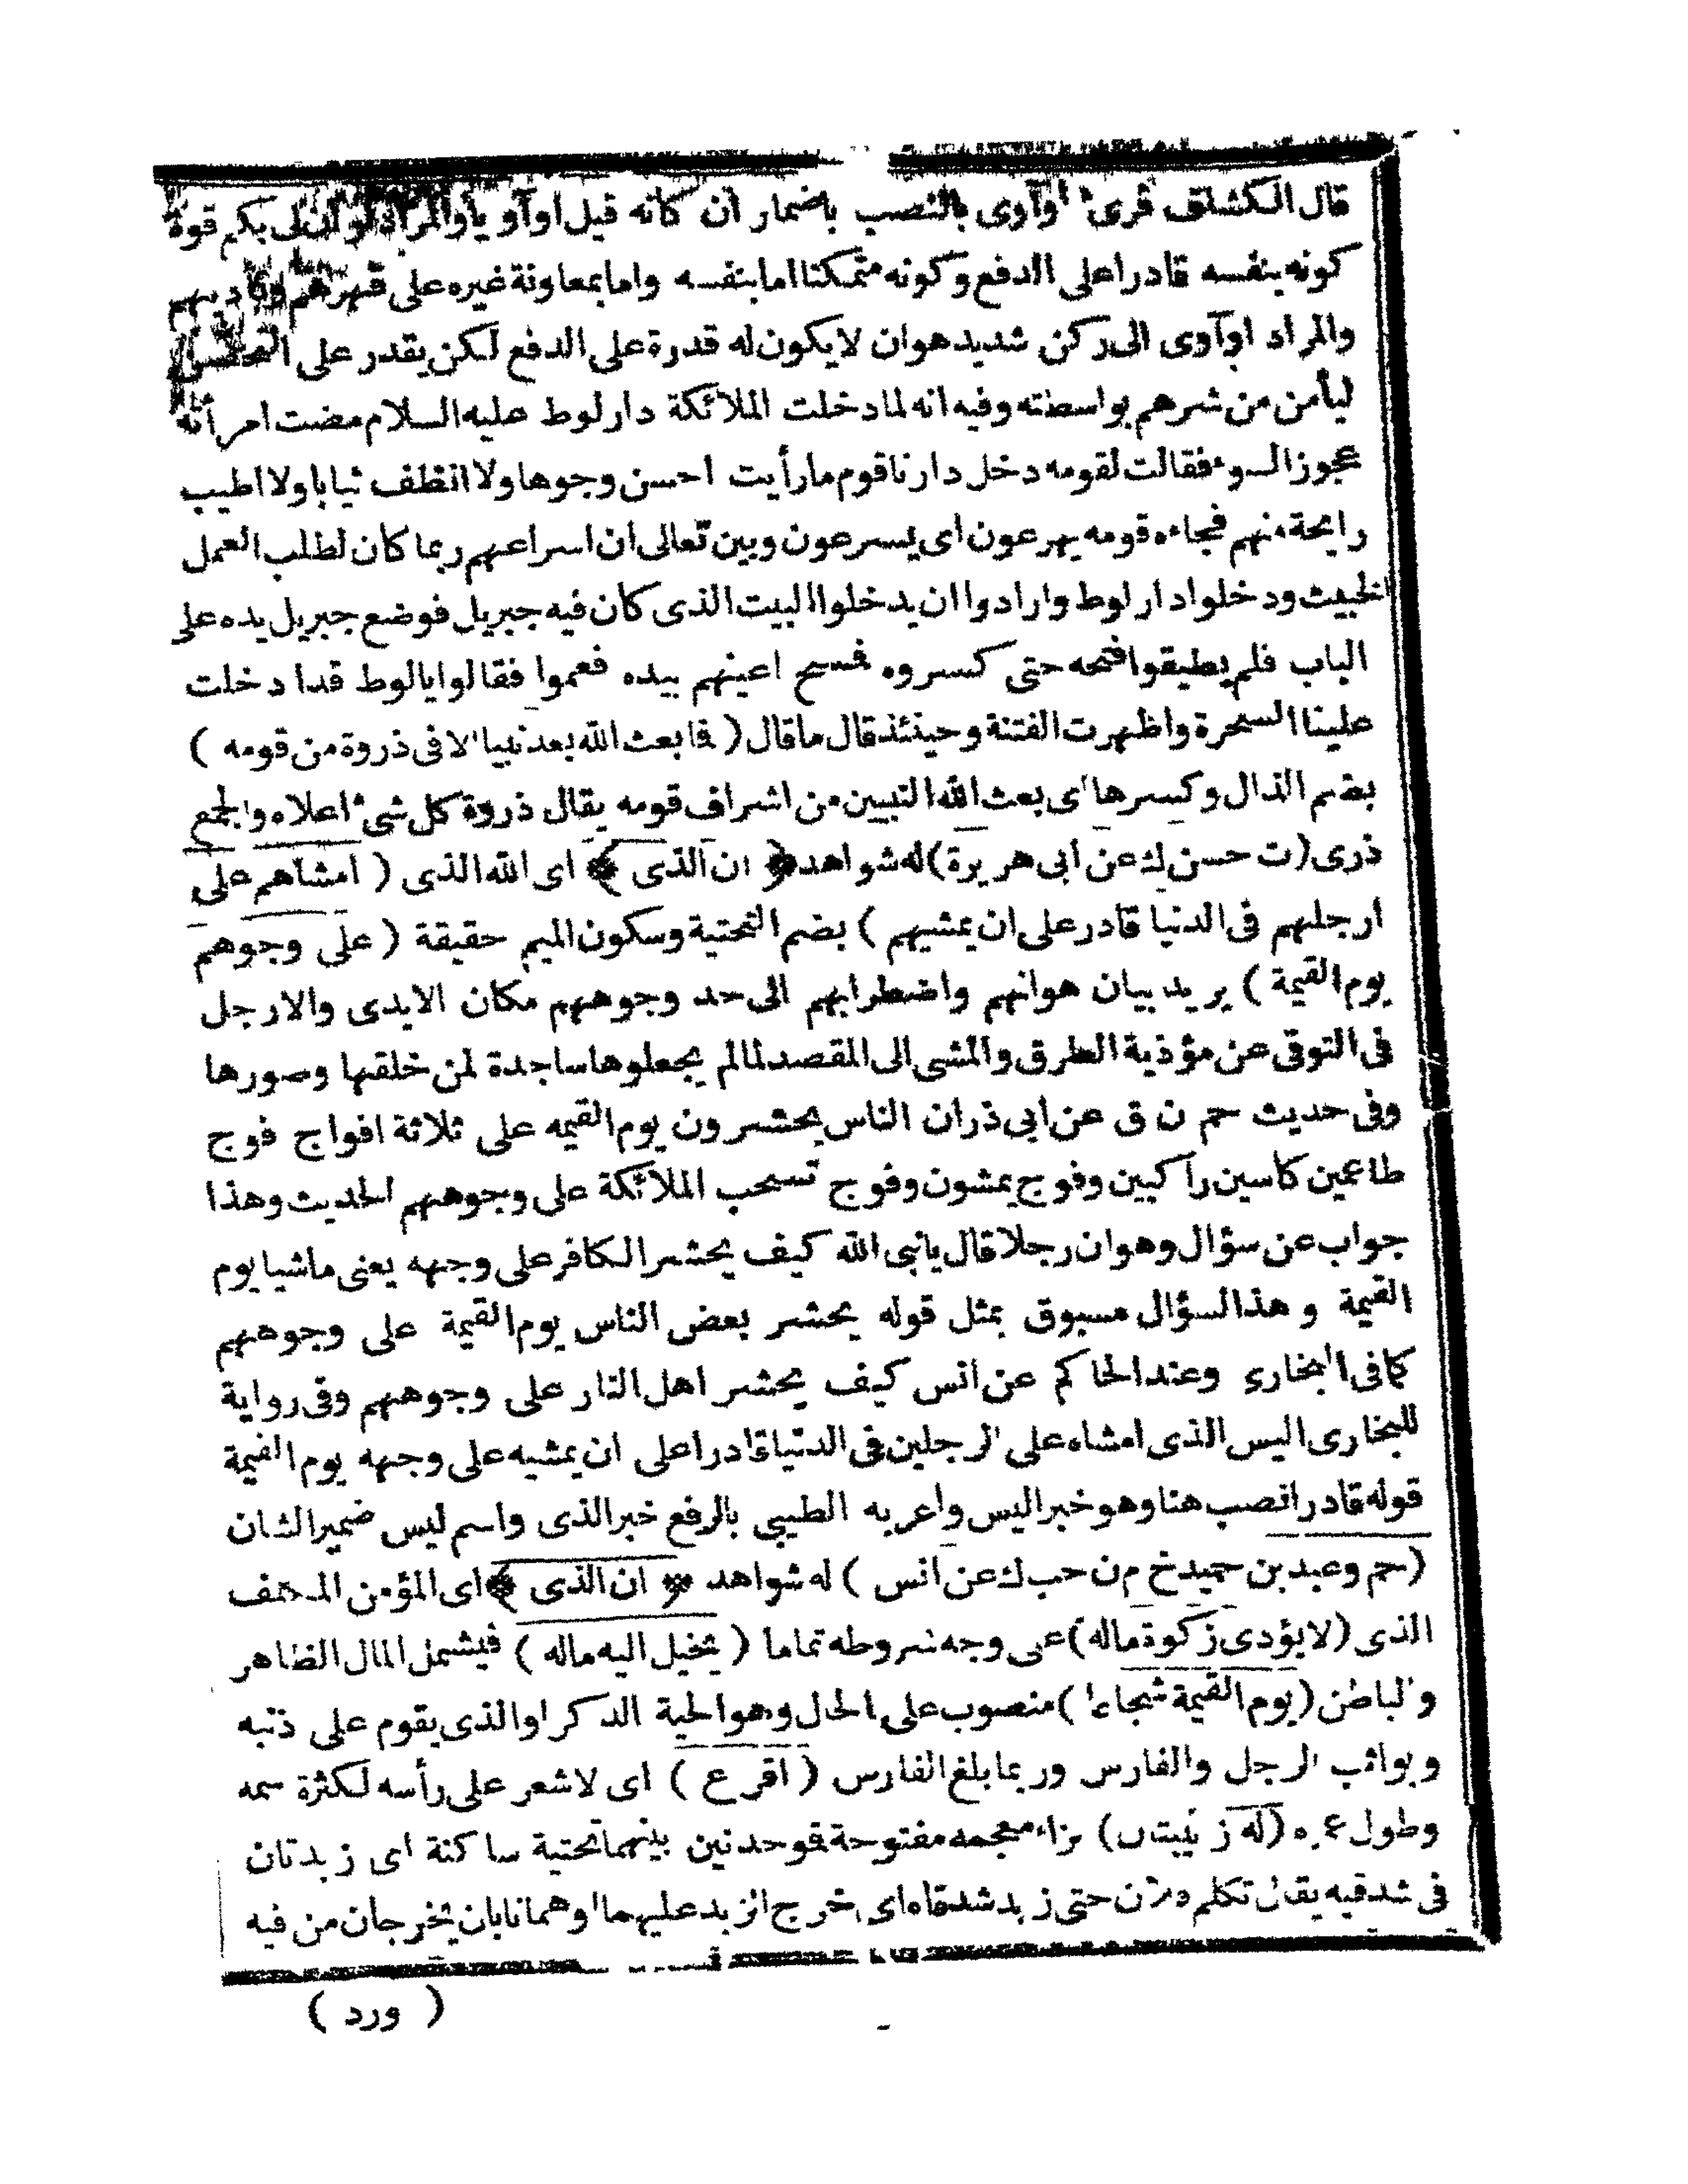 قال الكشاف قرئ اوآوى بالنصب باضمار أن كانه قيل اوآويا والمراد لو ان لى بكم قوة
كونه بنفسه قادرا على الدفع وكونه متمكنا اما بنفسه واما بمعاونة غيره على قهرهم وتأديبهم
والمراد اوآوى الى ركن شديد هوان لايكون له قدرة على الدفع لكن يقدر على التحصن
ليأمن من شرهم بواسطته وفيه انه لما دخلت الملائكة دار لوط عليه السلام مضت امرأته
عجوز السوء فقالت لقومه دخل دارنا قوم مارأيت احسن وجوها ولا انظف ثيابا ولا اطيب
رايحة منهم فجاءه قومه يهرعون اى يسرعون وبين تعالى ان اسراعهم ربما كان لطلب العمل
الخبيث ودخلوا دار لوط وارادوا ان يدخلوا البيت الذى كان فيه جبريل فوضع جبريل يده على
الباب فلم يطيقوا فتحه حتى كسروه فمسح اعينهم بيده فعموا فقالوا يالوط قدا دخلت
علينا السحرة واظهرت الفتنة وحينئذ قال ماقال (فا بعث الله بعد نبيا الا فى ذروة من قومه)
بضم الذال وكسرها اى بعث الله النبيين من اشراف قومه يقال ذروة كل شئ اعلاه والجمع
ذرى (ت حسن ك عن أبى هريرة) له شواهد ﴿ ان الذى ﴾ اى الله الذى ( امشاهم على
ارجلهم فى الدنيا قادر على ان يمشيهم ) بضم التحتية وسكون الميم حقيقة ( على وجوههم
يوم القيمة ) يريد بيان هوانهم واضطرابهم الى حد وجوههم مكان الايدى والارجل
فى التوقى عن مؤذية الطرق والمشى الى المقصد لما لم يجعلوها ساجدة لمن خلقها وصورها
وفى حديث حم ن ق عن ابى ذر ان الناس يحشرون يوم القيمه على ثلاثة افواج فوج
طاعمين كاسين راكبين وفوج يمشون وفوج تسحب الملائكة على وجوههم الحديث وهذا
جواب عن سؤال وهوان رجلا قال يانبى الله كيف يحشر الكافر على وجهه يعنى ماشيا يوم
القيمة و هذا السؤال مسبوق بمثل قوله يحشر بعض الناس يوم القيمة على وجوههم
كمافى البخارى وعند الحاكم عن انس كيف يحشر اهل النار على وجوههم وفى رواية
للبخارى اليس الذى امشاه على الرجلين فى الدنيا قادرا على ان يمشيه على وجهه يوم القيمة
قوله قادرا نصب هنا وهو خبر اليس واعربه الطيبى بالرفع خبر الذى واسم ليس ضمير الشان
(حم وعبد بن حميد خ م ن حب ك عن انس ) له شواهد ﴿ ان الذى ﴾ اى المؤمن المكلف
الذى (لا يؤدى زكوة ماله) على وجه شروطه تماما ( يخيل اليه ماله ) فيشمل المال الظاهر
والباطن (يوم القيمة شجاعا ) منصوب على الحال وهو الحية الذكر اوالذى يقوم على ذنبه
ويواثب الرجل والفارس وربما بلغ الفارس ( اقرع ) اى لاشعر على رأسه لكثرة سمه
وطول عمره (له زبيبتان) بزاء معجمه مفتوحة فموحدتين بينهما تحتية ساكنة اى زبدتان
فى شدقيه يقال تكلم فلان حتى زبد شدقاه اى خرج الزبد عليهما او همانابان يخرجان من فيه
( ورد )